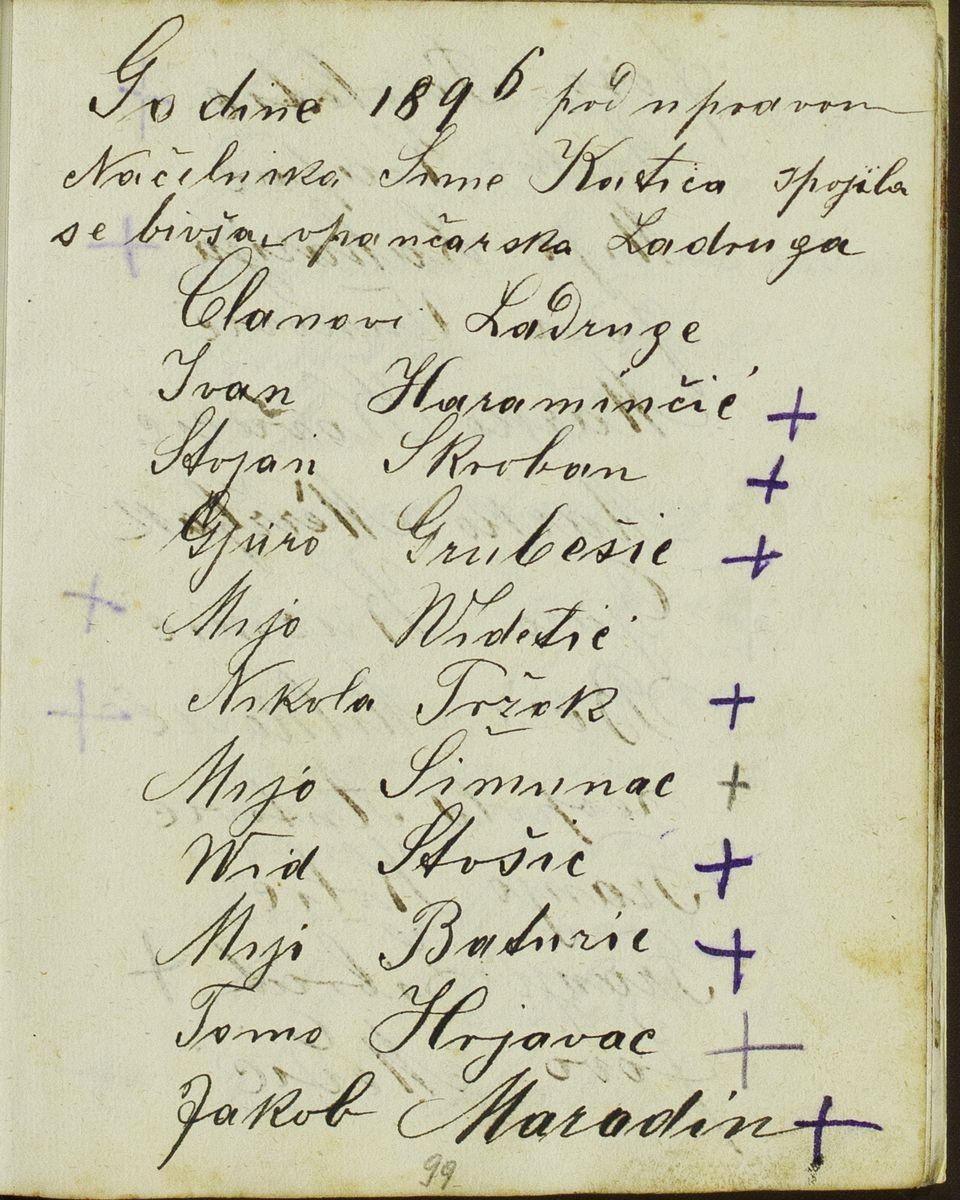 Godine 1896 pod upravom
Načelnika Sime Katića spojila
se bivša opančarska Ladruga
Clanovi Ladruge
Ivan Haraminčić +
Stojan Skroban +
Gjuro Grubešić +
Mijo Widetić
Nikola Tržok +
Mijo Simunac +
Wid Stošic +
Mijo Baturic +
Tomo Hrjavac +
Jakob Maradin +
99